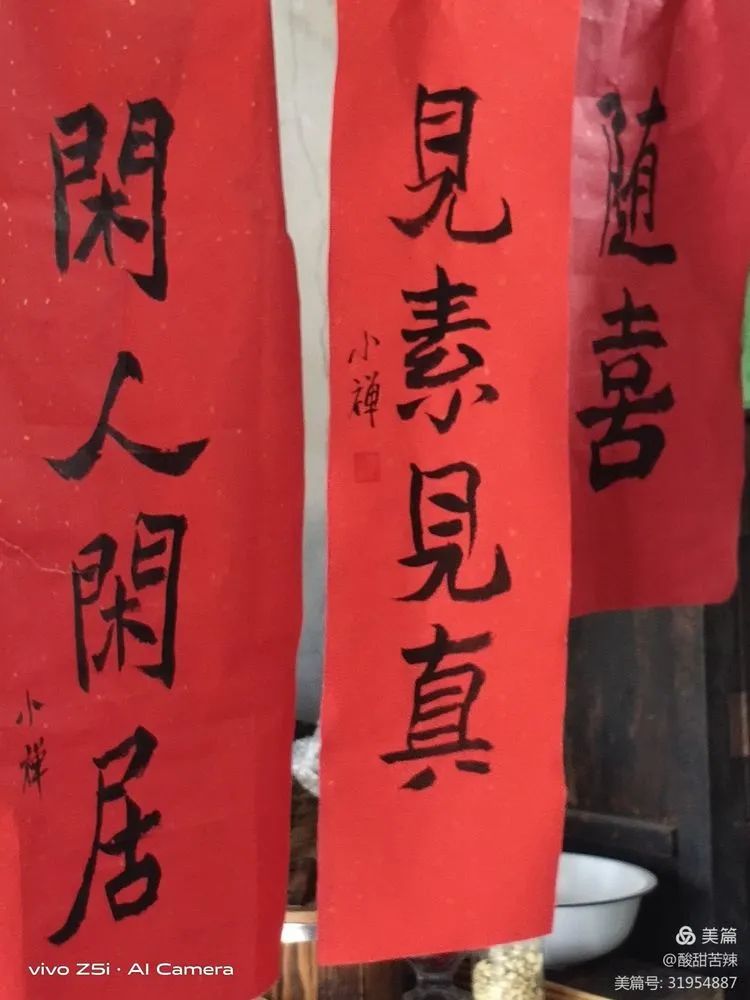 随喜
見素見真
小禅
閑人閑居
小禅
vivo Z5i · AI Camera
美篇
@酸甜苦辣
美篇号: 31954887